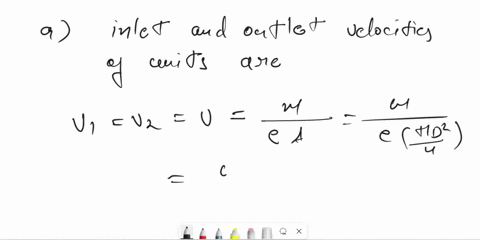 a) inlet and outlet velocities
of units are
V1 = V2 = V = m / e A = m / e (πD²/4)
=